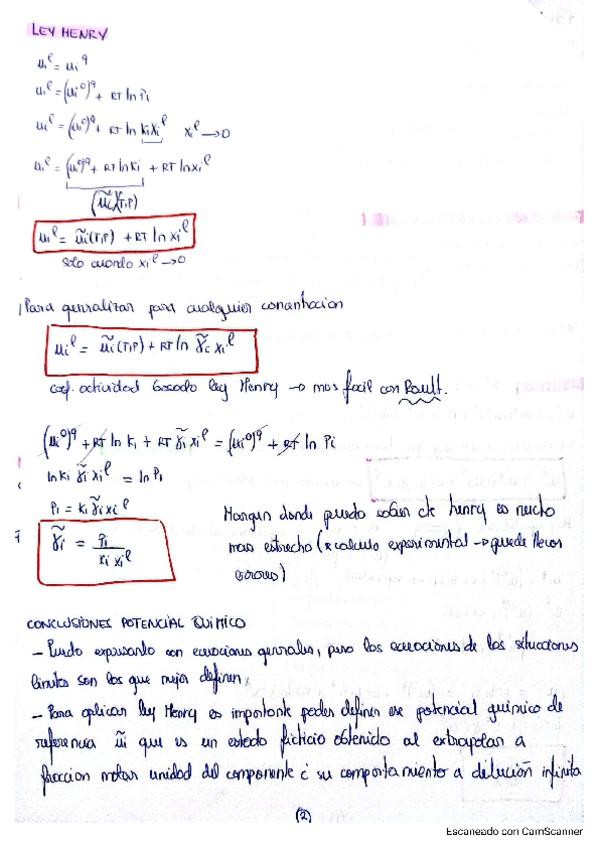 LEY HENRY
μiˡ = μi^g
μiˡ = (μi⁰)^g + RT ln Pi
μiˡ = (μi⁰)^g + RT ln ki xiˡ    xiˡ → 0
μiˡ = (μi⁰)^g + RT ln ki + RT ln xiˡ
(μ̃i)(T,P)
μiˡ = μ̃i(T,P) + RT ln xiˡ
solo cuando xiˡ → 0
Para generalizar para cualquier concentracion
μiˡ = μ̃i(T,P) + RT ln γ̃i xiˡ
coef. actividad basado ley Henry → mas facil con Raoult.
(μi⁰)^g + RT ln ki + RT γ̃i xiˡ = (μi⁰)^g + RT ln Pi
ln ki γ̃i xiˡ = ln Pi
Pi = ki γ̃i xiˡ
γ̃i = Pi / ki xiˡ
Margen donde puedo sacar cte henry es mucho
mas estrecho (x calculo experimental → puede llevar
errores)
CONCLUSIONES POTENCIAL QUIMICO
– Puedo expresarlo con ecuaciones generales, pero las ecuaciones de las situaciones
limites son las que mejor definen.
– Para aplicar ley Henry es importante poder definir ese potencial quimico de
referencia μ̃i que es un estado ficticio obtenido al extrapolar a
fraccion molar unidad del componente i su comportamiento a dilución infinita
(2)
Escaneado con CamScanner